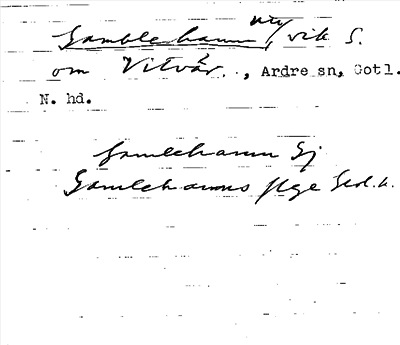 Gamblehamn, vik S.
om Vitvär., Ardre sn, Gotl.
N. hd.
Gamlehamn Sj
Gamlehamns flge Geol.k.